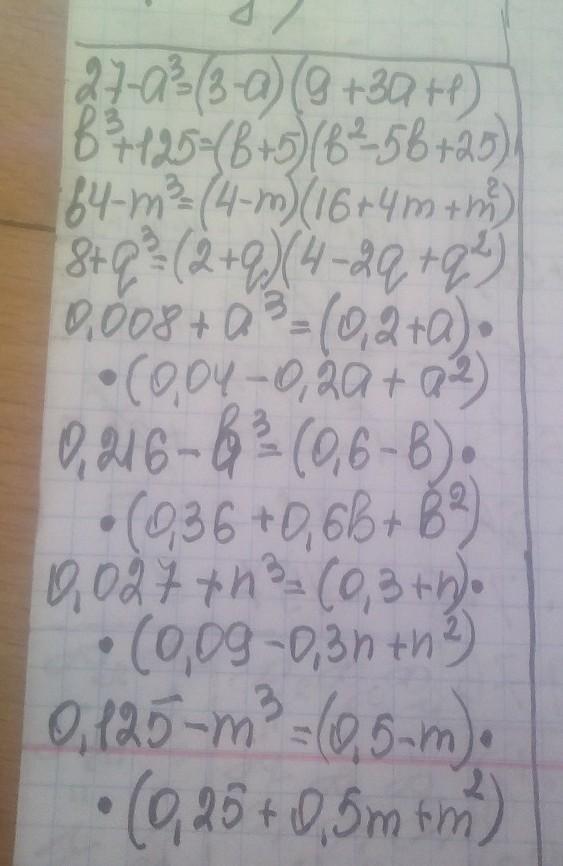 27-a³=(3-a)(9+3a+1)
b³+125=(b+5)(b²-5b+25)
64-m³=(4-m)(16+4m+m²)
8+q³=(2+q)(4-2q+q²)
0,008+a³=(0,2+a)•
•(0,04-0,2a+a²)
0,216-b³=(0,6-b)•
•(0,36+0,6b+b²)
0,027+n³=(0,3+n)•
•(0,09-0,3n+n²)
0,125-m³=(0,5-m)•
•(0,25+0,5m+m²)